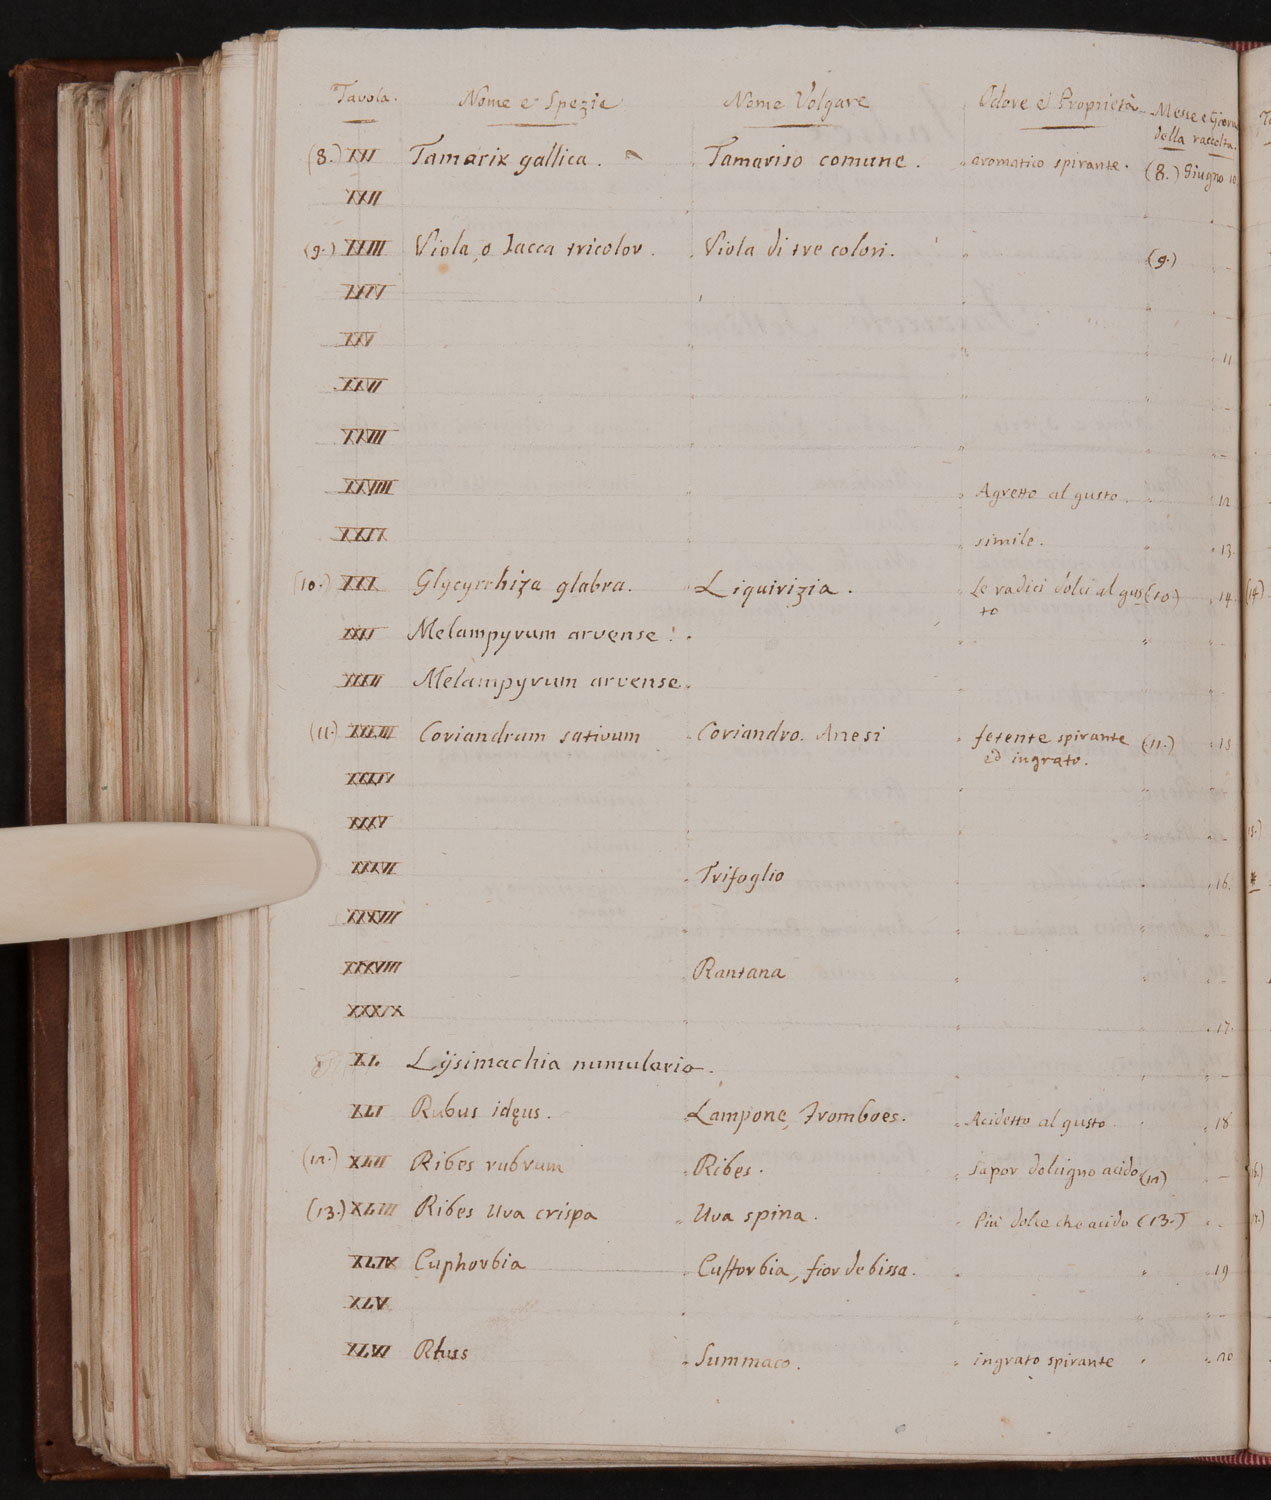 Tavola. Nome e Spezie Nome Volgare Odore e Proprietà Mese e Giorno
della raccolta.
(8.) XXI Tamarix gallica. Tamariso comune. aromatico spirante. (8.) Giugno 10
XXII
(9.) XXIII Viola, o Jacca tricolor. Viola di tre colori. (9.)
XXIV
XXV 11
XXVI
XXVII
XXVIII Agretto al gusto 12
XXIX simile. 13
(10.) XXX Glycyrrhiza glabra. Liquirizia. Le radici dolci al gus (10) 14
to
XXXI Melampyrum arvense.
XXXII Melampyrum arvense.
(11.) XXXIII Coriandrum sativum Coriandro. Anesi fetente spirante (11.) 15
ed ingrato.
XXXIV
XXXV
XXXVI Trifoglio 16.
XXXVII
XXXVIII Rantana
XXXIX 17.
XL Lÿsimachia numularia.
XLI Rubus idęus. Lampone, Fromboes. Acidetto al gusto 18
(12.) XLII Ribes rubrum Ribes. sapor dolcigno acido (12)
(13.) XLIII Ribes Uva crispa Uva spina. Più dolce che acido (13.)
XLIV Euphorbia Eufforbia, fior de bissa. 19
XLV
XLVI Rhus Summaco. ingrato spirante 20